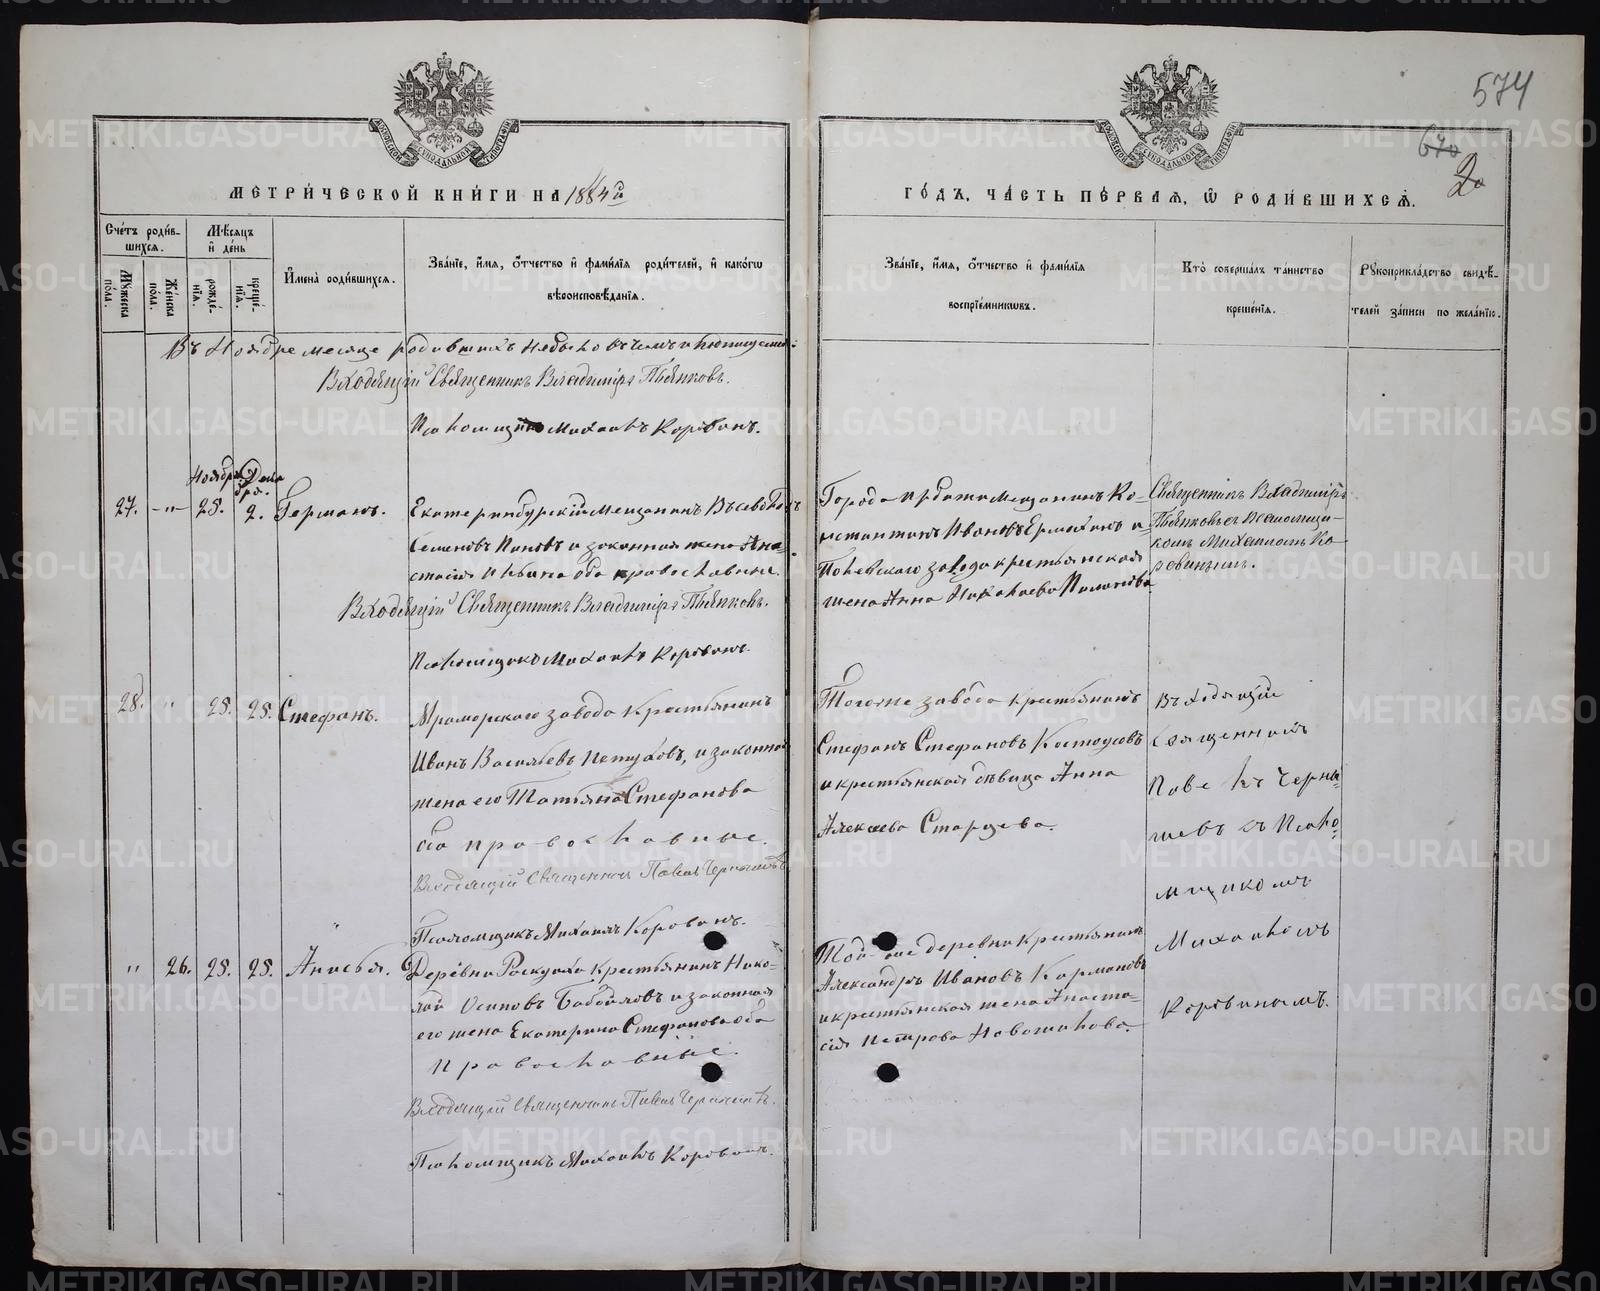 574
670
2
МОСКОВСКОЙ СѴНОДАЛЬНОЙ ТИПОГРАФІИ
МЕТРИ́ЧЕСКОЙ КНИ́ГИ НА 1884й
ГО́ДЪ, ЧА́СТЬ ПЕ́РВАѦ, Ѽ РОДИ́ВШИХСѦ.
Сче́тъ роди́в-
шихсѧ.
Мѣ́сѧцъ
и҆ де́нь
Мꙋ́жеска
по́ла.
Же́нска
по́ла.
рожде́-
нїѧ.
креще́-
нїѧ.
И҆мена̀ роди́вшихсѧ.
Зва́нїе, и҆́мѧ, о҆́тчество и҆ фами́лїѧ роди́телей, и҆ како́гѡ
вѣроисповѣ́данїѧ.
Зва́нїе, и҆́мѧ, о҆́тчество и҆ фами́лїѧ
воспрїе́мникѡвъ.
Кто̀ соверша́лъ та́инство
креще́нїѧ.
Рꙋкоприкла́дство свидѣ́-
телей за́писи по жела́нїю.
Въ Ноябре месяце родившихъ
Входящій Священникъ Владиміръ Пѣянковъ.
Псаломщикъ Михаилъ Коровинъ.
Ноября Дека
бря.
27. -"- 25. 2. Германъ.
Екатеринбургскій Мещанинъ Всеволодъ
Семеновъ Поповъ и законная жена Ана-
стасія Ильина оба православные.
Входящій Священникъ Владиміръ Пѣянковъ.
Псаломщикъ Михаилъ Коровинъ.
Города Ирбита Мещанинъ Ко-
нстантинъ Ивановъ Ермохинъ и
Полевскаго завода крестьянская
жена Анна Николаева
Священникъ Владиміръ
Пѣянковъ съ Псаломщи-
комъ Михаиломъ Ко-
ровинымъ.
28. " 25. 25. Стефанъ.
Мраморскаго завода Крестьянинъ
Иванъ Васильевъ Петуховъ, и законная
жена его Татьяна Стефанова
оба православные.
Входящій Священникъ Павелъ Чернышевъ
Псаломщикъ Михаилъ Коровинъ.
Того же завода крестьянинъ
Стефанъ Стефановъ Костоусовъ
и крестьянская дѣвица Анна
Алексеева Старцева.
Входящій
Священникъ
Павелъ Черны-
шевъ съ Псало-
мщикомъ
Михаиломъ
Коровинымъ.
" 26. 25. 25. Анисья.
Деревни Раскуиха Крестьянинъ Нико-
лай Осиповъ Бабайловъ и законная
его жена Екатерина Стефанова оба
православные.
Входящій Священникъ Павелъ Чернышевъ.
Псаломщикъ Михаилъ Коровинъ.
Той-же деревни Крестьянинъ
Александръ Ивановъ Кармановъ
и крестьянская жена Анаста-
сія Петрова Новожилова.
METRIKI.GASO-URAL.RU